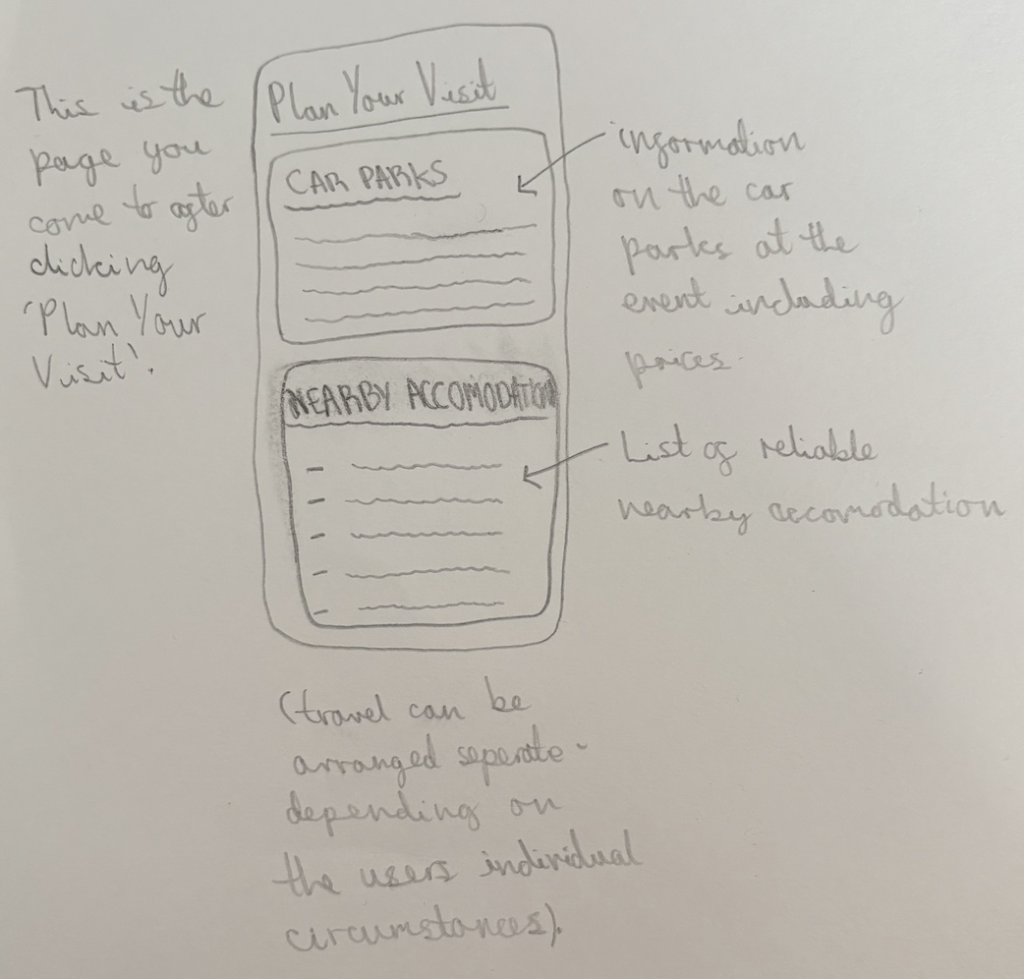 This is the
page you
come to after
clicking
'Plan Your
Visit'.
Plan Your Visit
CAR PARKS
NEARBY ACCOMODATION
information
on the car
parks at the
event including
prices.
List of reliable
nearby accomodation
(travel can be
arranged seperate -
depending on
the users individual
circumstances).